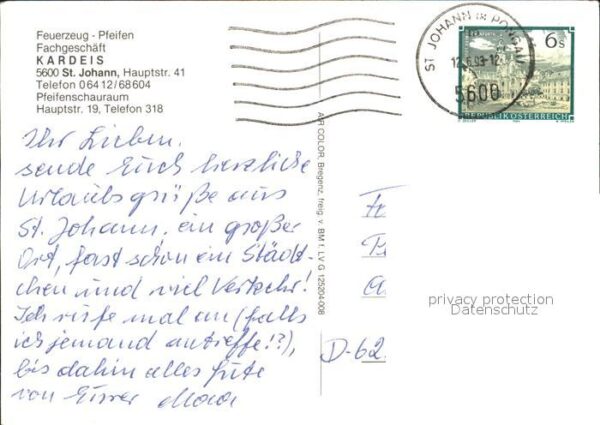 Feuerzeug - Pfeifen
Fachgeschäft
KARDEIS
5600 St. Johann, Hauptstr. 41
Telefon 06412/68604
Pfeifenschauraum
Hauptstr. 19, Telefon 318
Ihr Lieben,
sende Euch herzliche
Urlaubsgrüße aus
St. Johann, ein großer
Ort, fast schon ein Städt-
chen und viel Verkehr!
Ich rufe mal an (falls
ich jemand antreffe!?),
bis dahin alles Gute
von Eurer
ASH COLOR, Bregenz, freig. v. BM f. LV G 125204-008
ST. JOHANN im PONGAU
12.6.93-12
5600
6s
REPUBLIK ÖSTERREICH
D-62
privacy protection
Datenschutz